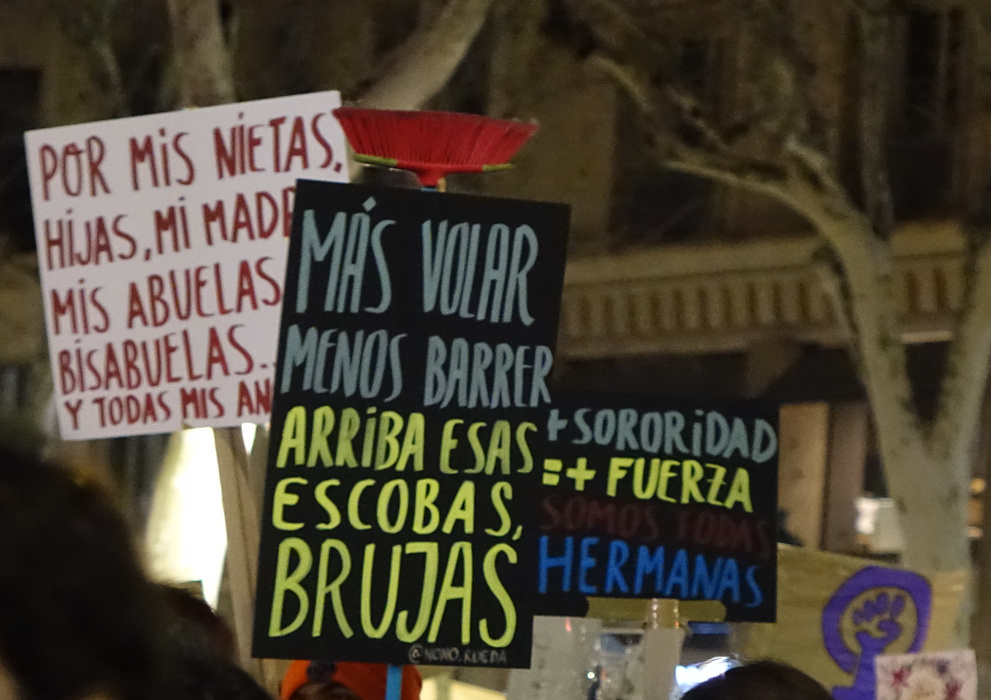 POR MIS NIETAS,
HIJAS, MI
MIS ABUELAS
BISABUELAS..
Y TODAS MIS
MÁS VOLAR
MENOS BARRER
ARRIBA ESAS
ESCOBAS,
BRUJAS
@NONO.RUEDA
+ SORORIDAD
= + FUERZA
SOMOS TODAS
HERMANAS